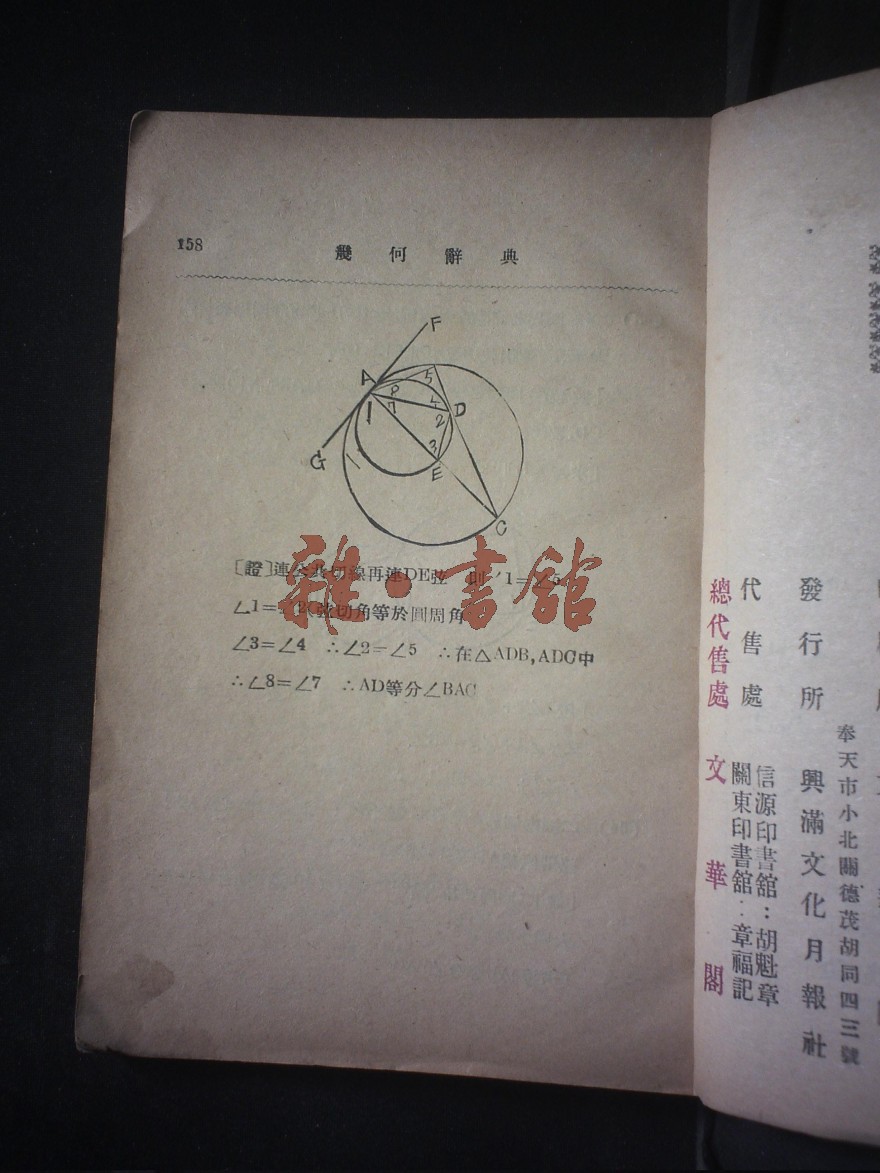 158
幾何辭典
F
A
8
5
1
7
4
2
D
G
3
E
C
雜·書舘
〔證〕連公共切線再連DE弦 則∠1=∠5
∠1=∠2(弦切角等於圓周角
∠3=∠4 ∴∠2=∠5 ∴在△ADB,ADC中
∴∠8=∠7 ∴AD等分∠BAC
奉天市小北關德茂胡同四三號
發行所 興滿文化月報社
代售處 信源印書舘:胡魁章
關東印書舘:章福記
總代售處 文華閣